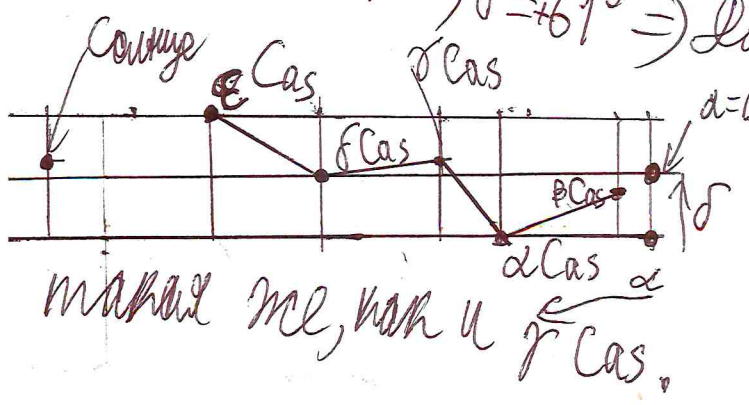 δ=+61° =>
Солнце
ε Cas
γ Cas
δ Cas
α=
β Cas
δ
α Cas
α
такая же, как и γ Cas.